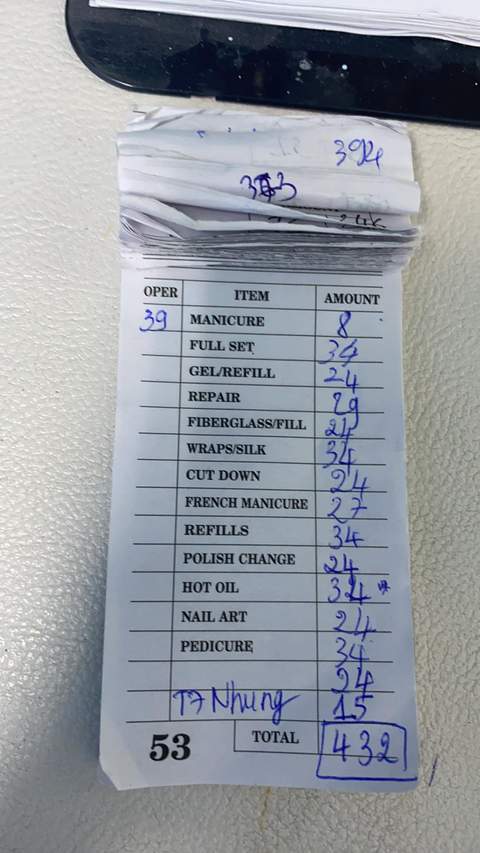 OPER ITEM AMOUNT
39 MANICURE 8
FULL SET 34
GEL/REFILL 24
REPAIR 29
FIBERGLASS/FILL 24
WRAPS/SILK 34
CUT DOWN 24
FRENCH MANICURE 27
REFILLS 34
POLISH CHANGE 24
HOT OIL 34
NAIL ART 24
PEDICURE 34
24
T7 Nhung 15
53 TOTAL 432